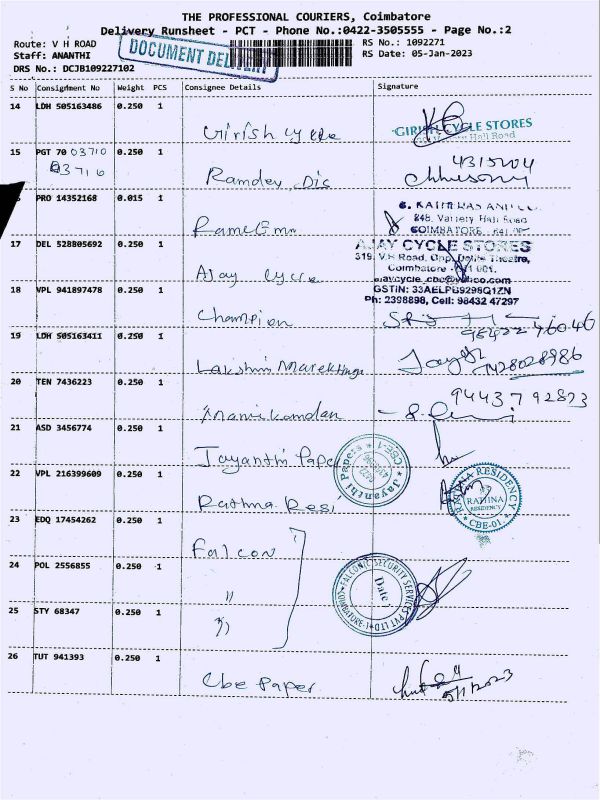 THE PROFESSIONAL COURIERS, Coimbatore
Delivery Runsheet - PCT - Phone No.:0422-3505555 - Page No.:2
Route: V H ROAD
Staff: ANANTHI
DRS No.: DCJB109227102
DOCUMENT
RS No.: 1092271
RS Date: 05-Jan-2023
S No Consignment No Weight PCS Consignee Details Signature
14 LDH 505163486 0.250 1
Girish Cycle
GIRISH CYCLE STORES
Hall Road
15 PGT 70 03710 0.250 1
03710
Ramdev Dis
PRO 14352168 0.015 1
848, Variety Hall Road
COIMBATORE
17 DEL 528805692 0.250 1
Ajay Cycle
AJAY CYCLE STORES
319, V.H Road, Opp. Delite Theatre,
Coimbatore
GSTIN: 33AELPB9298Q1ZN
Ph: 2398898, Cell: 98432 47297
18 VPL 941897478 0.250 1
Champion
19 LDH 505163411 0.250 1
Lakshmi
20 TEN 7436223 0.250 1
94437 92823
21 ASD 3456774 0.250 1
Jayanthi Pape
Jayanthi Papers
CBE-1
22 VPL 216399609 0.250 1
Rathna Resi
RATHNA RESIDENCY
RATHNA
RESIDENCY
CBE-01
23 EDQ 17454262 0.250 1
Falcon
24 POL 2556855 0.250 1
"
FALCONIC SECURITY SERVICES PVT LTD
COIMBATORE-1
Date
25 STY 68347 0.250 1
"
26 TUT 941393 0.250 1
Cbe Paper
5/1/2023